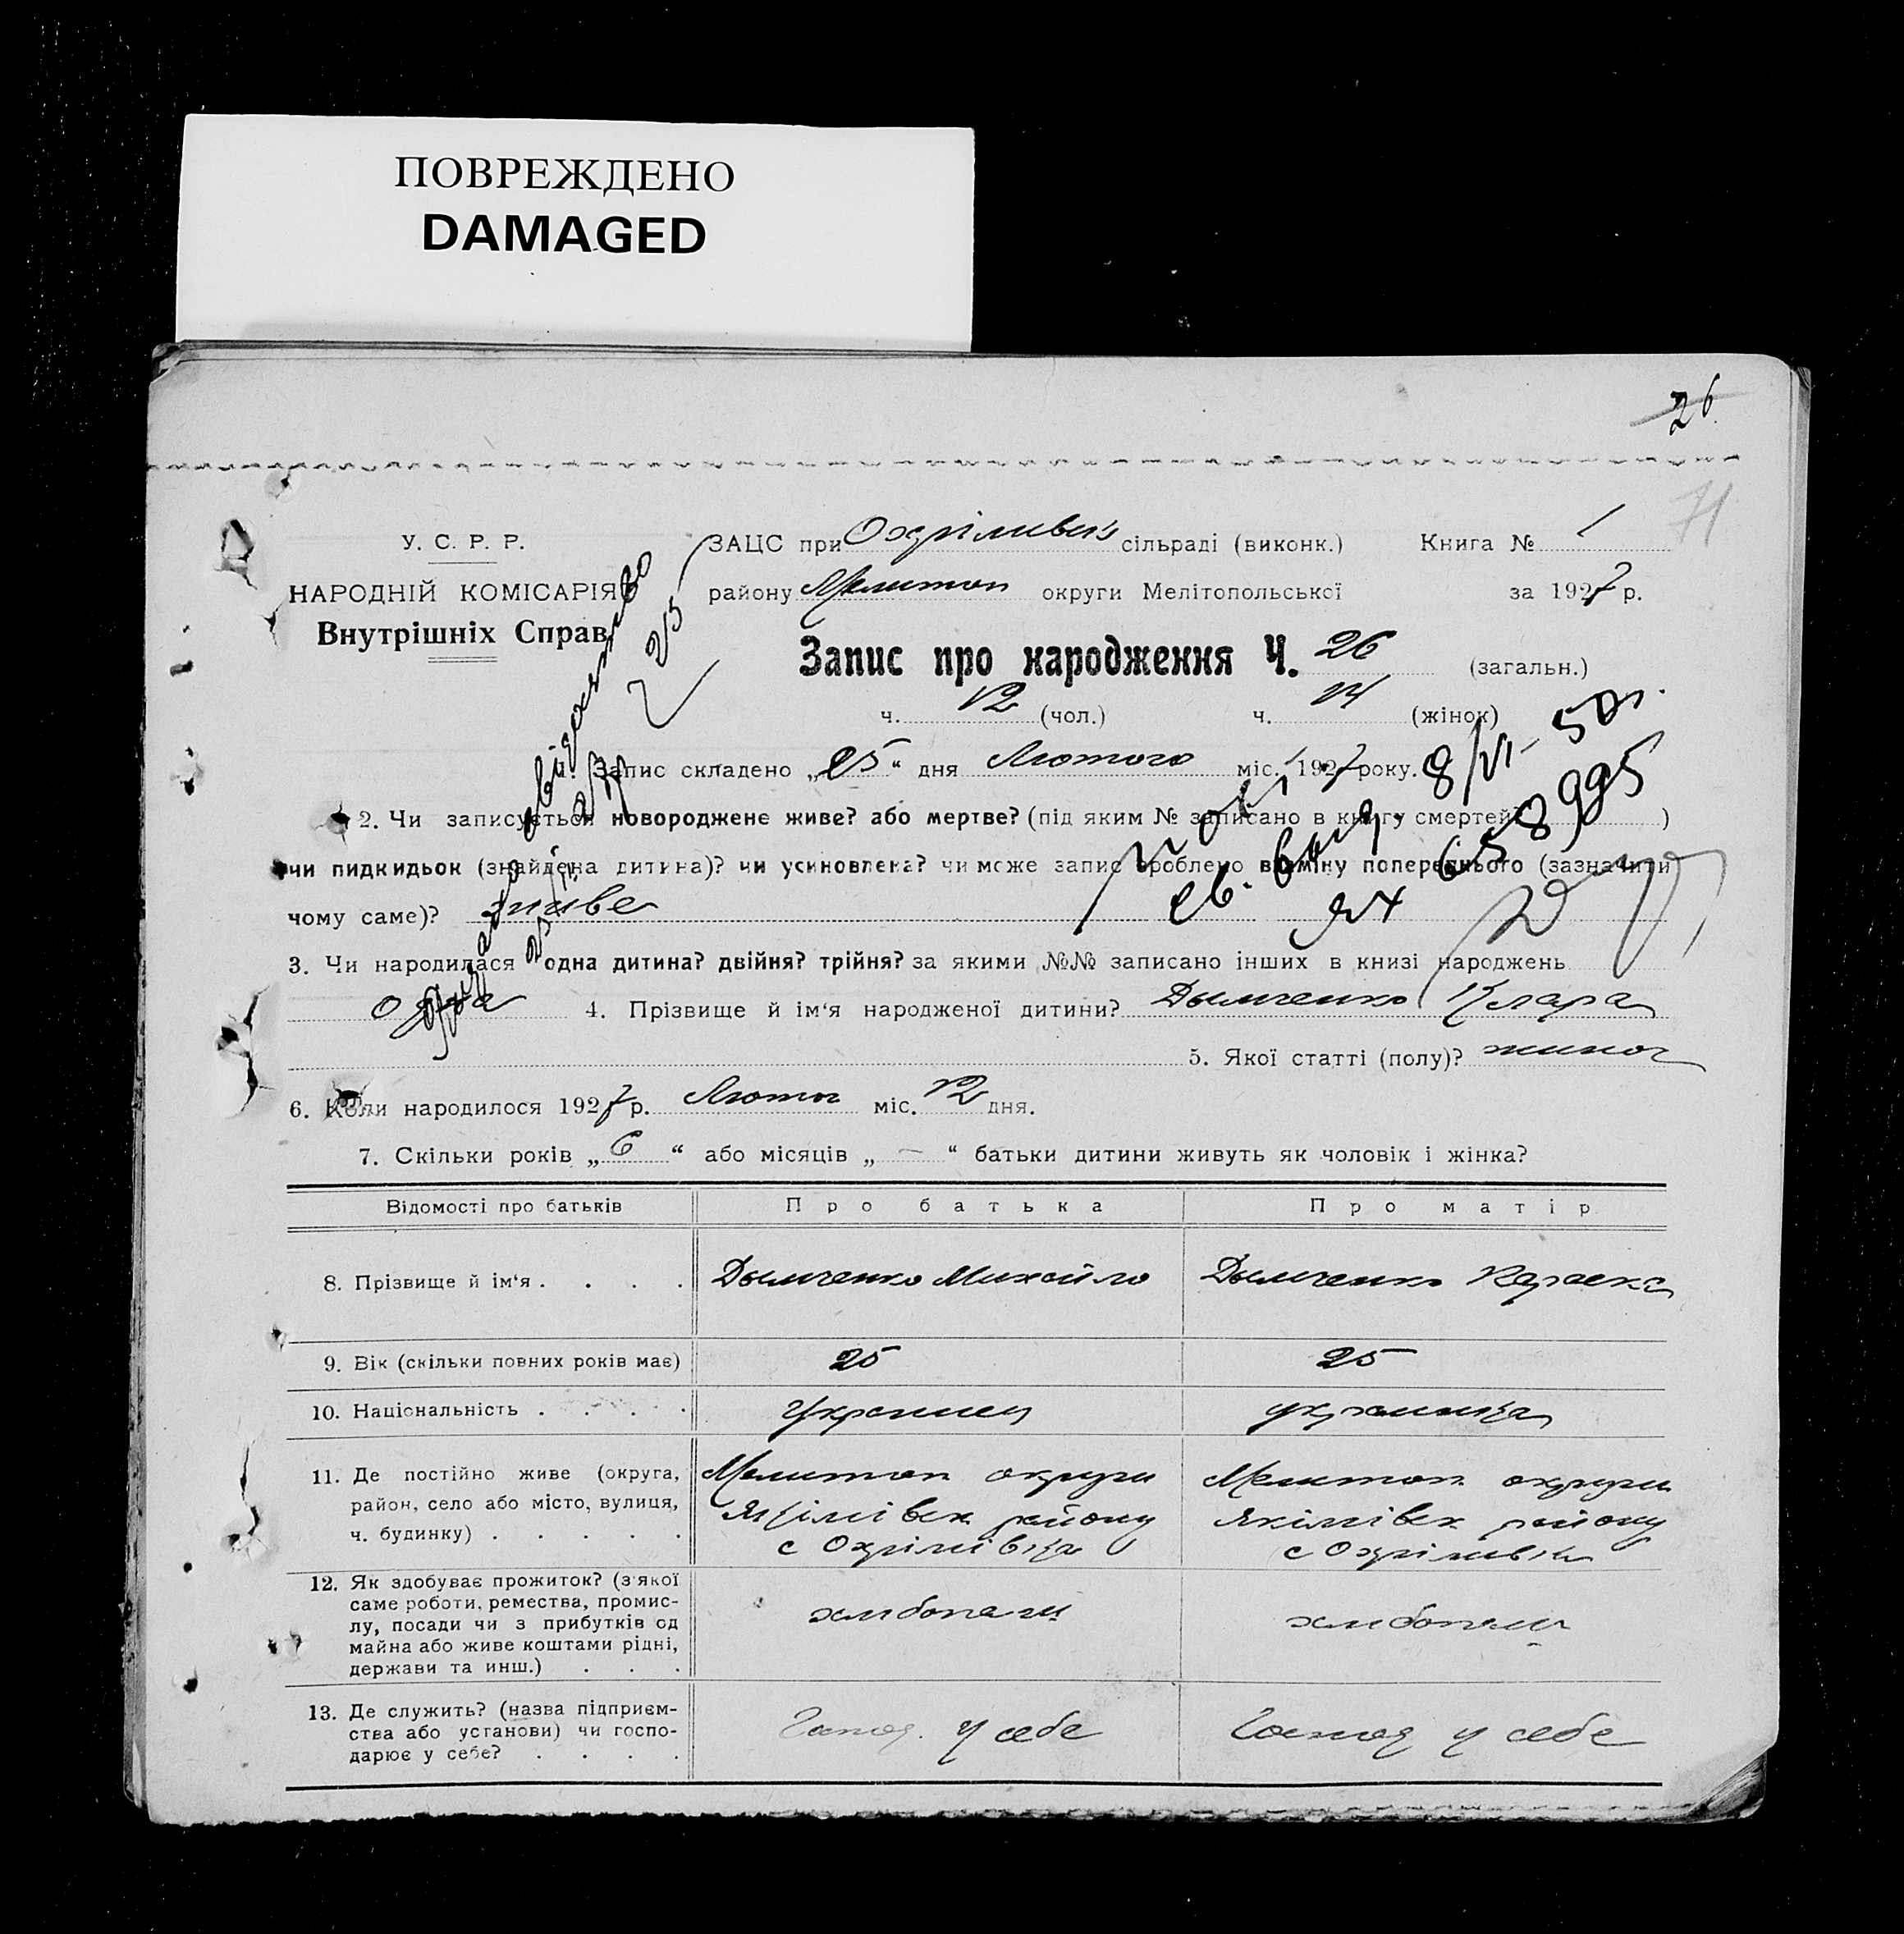 ПОВРЕЖДЕНО
DAMAGED
26
71
У. С. Р. Р.
НАРОДНІЙ КОМІСАРІЯТ
Внутрішніх Справ
ЗАЦС при Охрімивскій сільраді (виконк.) Книга № 1
району Мелитоп округи Мелітопольської за 1927 р.
Запис про народження Ч. 26 (загальн.)
ч. 12 (чол.) ч. 14 (жінок)
1. Запис складено „25“ дня Лютого міс. 1927 року.
8/VI-50г.
2. Чи записується новороджене живе? або мертве? (під яким № записано в книгу смертей )
чи пидкидьок (знайдена дитина)? чи усиновлена? чи може запис зроблено взаміну попереднього (зазначити
чому саме)? живе
3. Чи народилася одна дитина? двійня? трійня? за якими №№ записано інших в книзі народжень
одна 4. Прізвище й ім‘я народженої дитини? Дымченко Клара
5. Якої статті (полу)? жиноч
6. Коли народилося 1927 р. Лютог міс. 12 дня.
7. Скільки років „6“ або місяців „—“ батьки дитини живуть як чоловік і жінка?
Відомості про батьків Про батька Про матір
8. Прізвище й ім‘я . . . . Дымченко Михайло Дымченко
9. Вік (скільки повних років має) 25 25
10. Національність . . . . Украинец украинка
11. Де постійно живе (округа, Мелитоп округи Мелитоп округи
район, село або місто, вулиця, Якімівск району Якімівск району
ч. будинку) . . . . . с Охрімівка с Охримівка
12. Як здобуває прожиток? (з якої
саме роботи, ремества, промис-
лу, посади чи з прибутків од хлибопаш хлибопаш
майна або живе коштами рідні,
держави та инш.) . . .
13. Де служить? (назва підприєм-
ства або установи) чи госпо- Господ. у себе Господ у себе
дарює у себе? . . . .